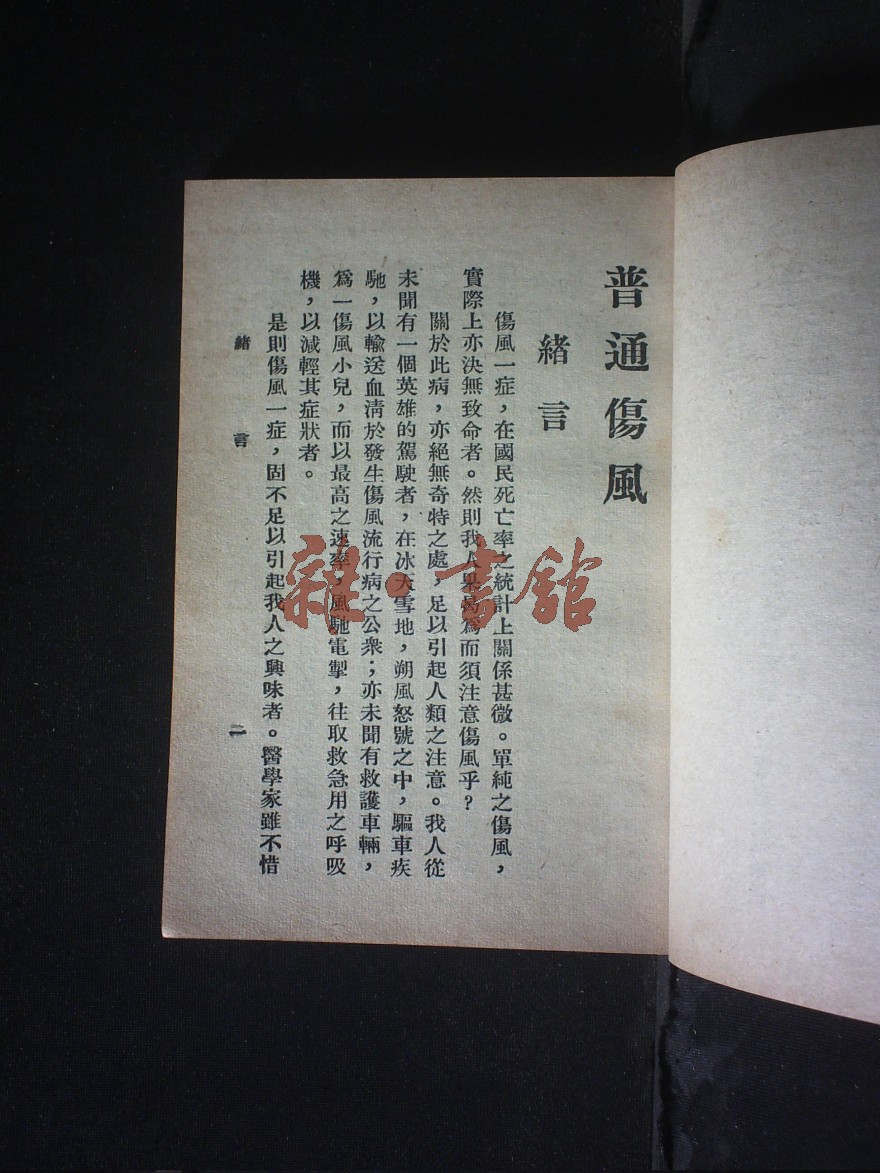 普通傷風
緒言
傷風一症，在國民死亡率之統計上關係甚微。單純之傷風，
實際上亦決無致命者。然則我人果曷爲而須注意傷風乎？
關於此病，亦絕無奇特之處，足以引起人類之注意。我人從
未聞有一個英雄的駕駛者，在冰天雪地，朔風怒號之中，驅車疾
馳，以輸送血清於發生傷風流行病之公衆；亦未聞有救護車輛，
爲一傷風小兒，而以最高之速率，風馳電掣，往取救急用之呼吸
機，以減輕其症狀者。
是則傷風一症，固不足以引起我人之興味者。醫學家雖不惜
緒言
雜·書館